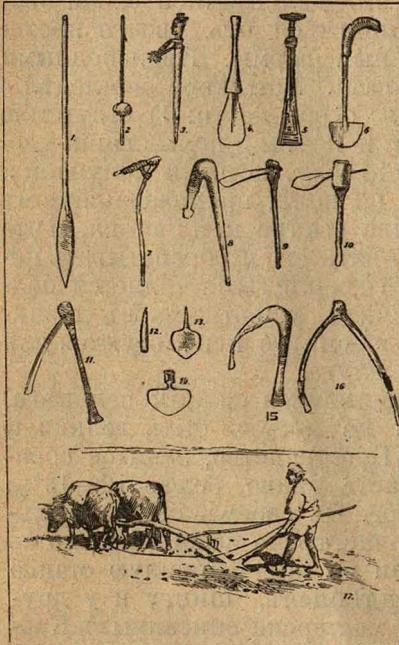 1.
2.
3.
4.
5
6
7
8
9
10
11.
12.
13.
14.
15
16
17.